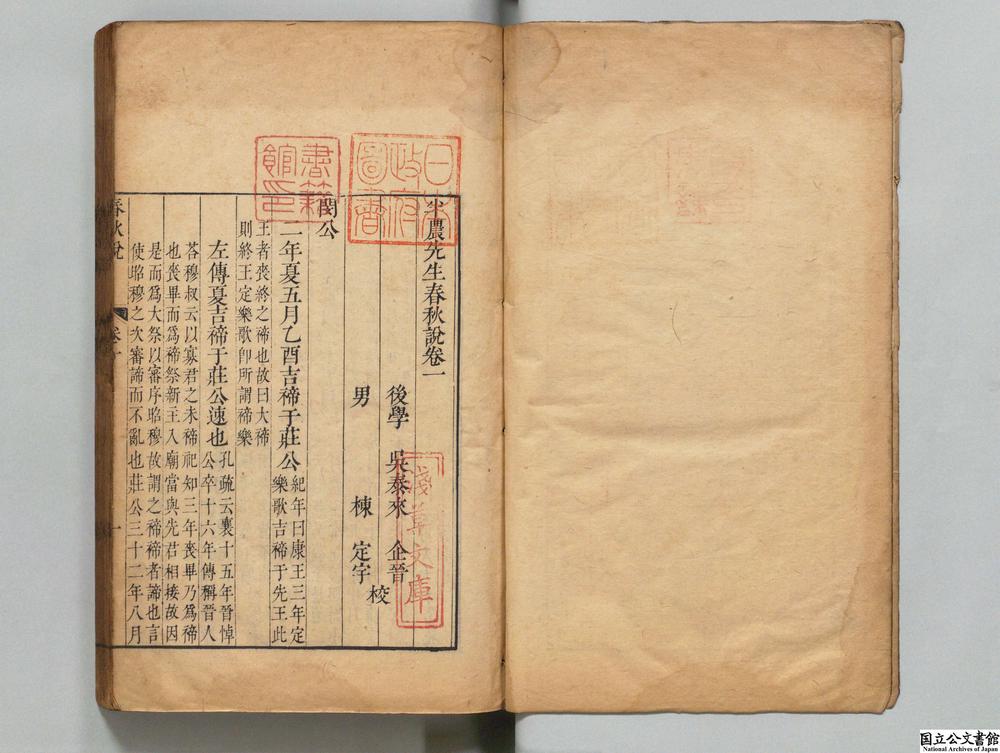 半農先生春秋說卷一
後學 吳泰來 企晉
男 棟 定宇 校
閔公
二年夏五月乙酉吉禘于莊公 紀年曰康王三年定
樂歌吉禘于先王此
王者喪終之禘也故曰大禘
則終王定樂歌卽所謂禘樂
左傳夏吉禘于莊公速也 孔疏云襄十五年晉悼
公卒十六年傳稱晉人
荅穆叔云以寡君之未禘祀知三年喪畢乃爲禘
也喪畢而爲禘祭新主入廟當與先君相接故因
是而爲大祭以審序昭穆故謂之禘禘者諦也言
使昭穆之次審諦而不亂也莊公三十二年八月
春秋說 一
日本政府圖書
書籍館印
淺草文庫
国立公文書館
National Archives of Japan